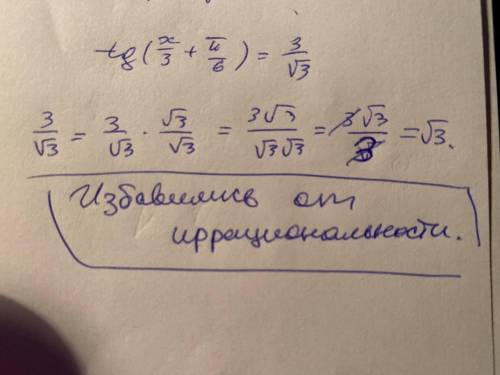 tg(x/3 + π/6) = 3/√3
3/√3 = 3/√3 · √3/√3 = 3√3/√3√3 = 3√3/3 = √3.
Избавились от
иррациональности.